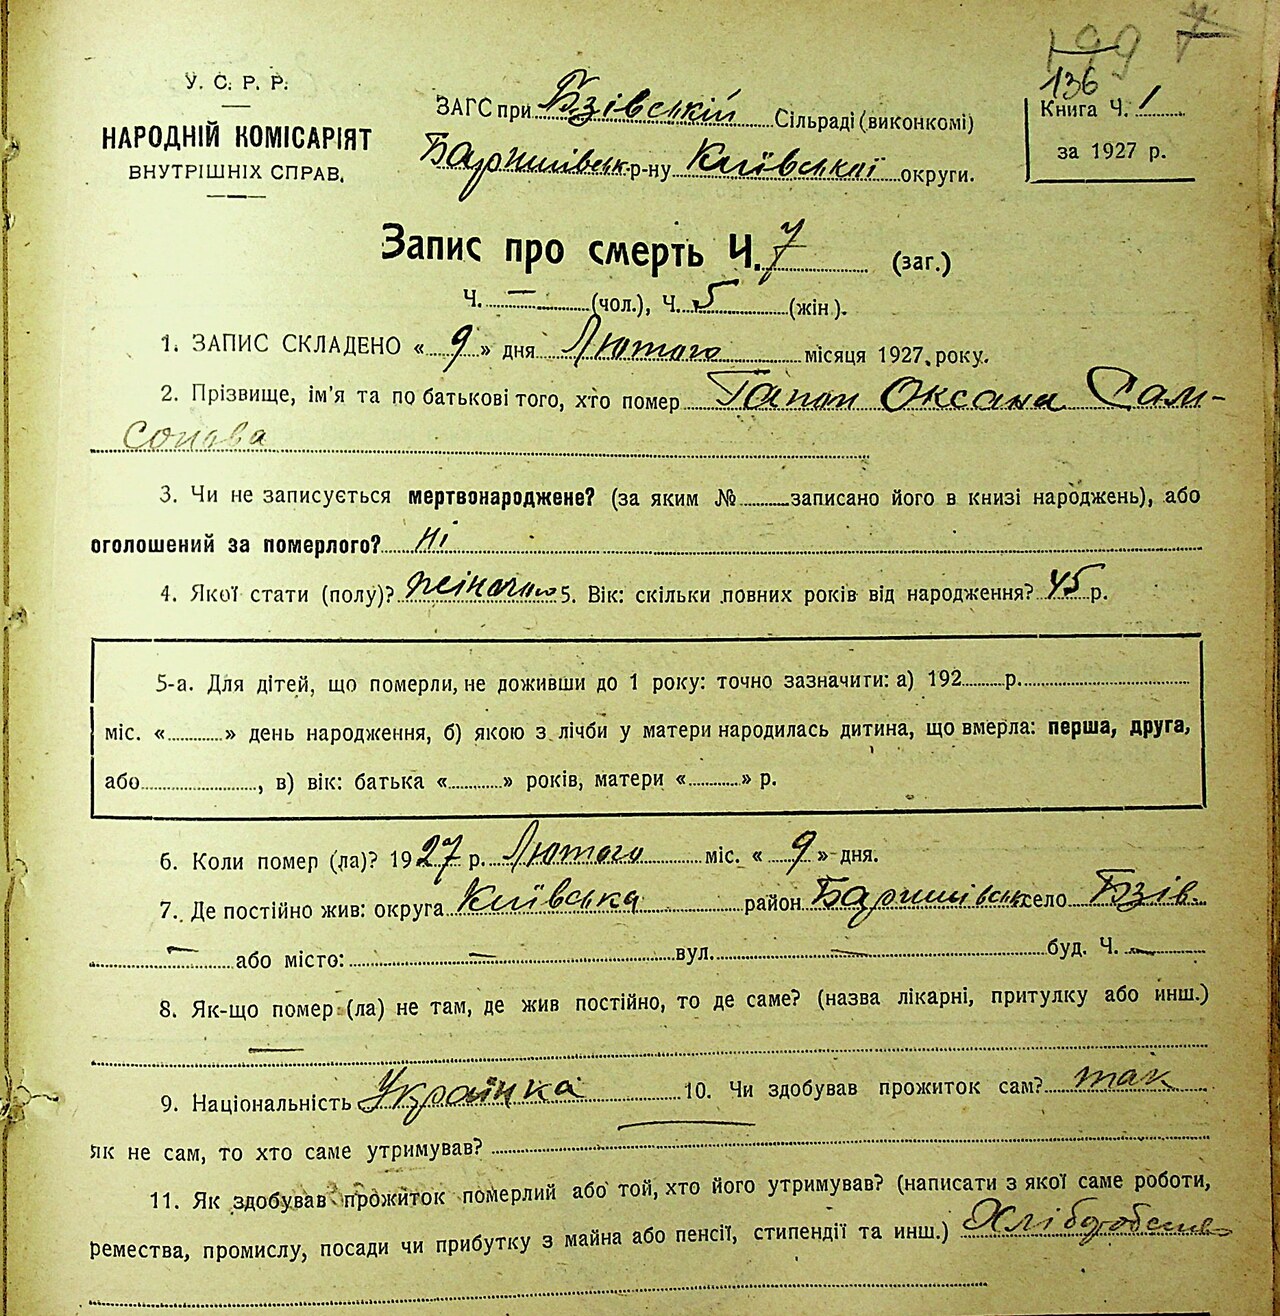 199 7
136
У. С. Р. Р.
НАРОДНІЙ КОМІСАРІЯТ
ВНУТРІШНІХ СПРАВ.
ЗАГС при Бзівській Сільраді (виконкомі)
Баришівськ р-ну Київської округи.
Книга Ч. 1
за 1927 р.
Запис про смерть Ч. 7 (заг.)
Ч. — (чол.), Ч. 5 (жін).
1. ЗАПИС СКЛАДЕНО « 9 » дня Лютого місяця 1927 року.
2. Прізвище, ім'я та по батькові того, хто помер Гапон Оксана Сам-
сонова
3. Чи не записується мертвонароджене? (за яким № записано його в книзі народжень), або
оголошений за померлого? ні
4. Якої стати (полу)? жіночої 5. Вік: скільки повних років від народження? 45 р.
5-а. Для дітей, що померли, не доживши до 1 року: точно зазначити: а) 192 р.
міс. « » день народження, б) якою з лічби у матери народилась дитина, що вмерла: перша, друга,
або , в) вік: батька « » років, матери « » р.
6. Коли помер (ла)? 1927 р. Лютого міс. « 9 » дня.
7. Де постійно жив: округа Київська район Баришівськ село Бзів
— або місто: — вул. — буд. Ч. —
8. Як-що помер (ла) не там, де жив постійно, то де саме? (назва лікарні, притулку або инш.)
—
9. Національність Українка 10. Чи здобував прожиток сам? так
як не сам, то хто саме утримував? —
11. Як здобував прожиток померлий або той, хто його утримував? (написати з якої саме роботи,
ремества, промислу, посади чи прибутку з майна або пенсії, стипендії та инш.)